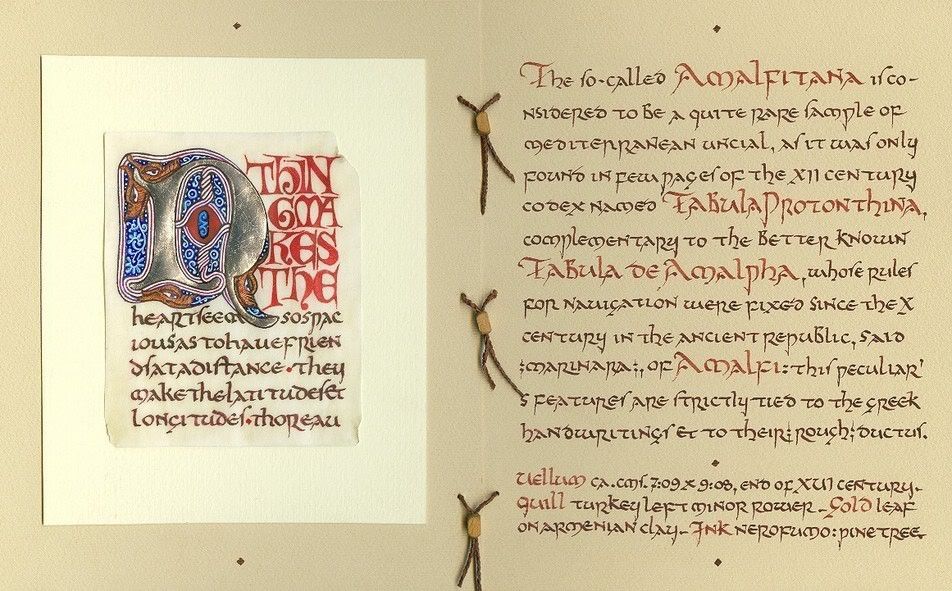 NO THIN
GMA
KES
THE
heartseem sospac
iousastohavefrien
dsatadistance·they
makethelatitudeset
longitudes·thoreau
The so-called Amalfitana is co-
nsidered to be a quite rare sample of
mediterranean uncial, as it was only
found in few pages of the XII century
codex named Tabula Protonthina,
complementary to the better known
Tabula de Amalpha, whose rules
for navigation were fixed since the X
century in the ancient republic, said
:marinara:, of Amalfi: this peculiar'
s features are strictly tied to the greek
handwritings et to their:rough:ductus.
vellum ca.cms. 7:09 x 9:08, end of XVII century-
quill turkey left minor rower - Gold leaf
on armenian clay - Ink nerofumo: pine tree.